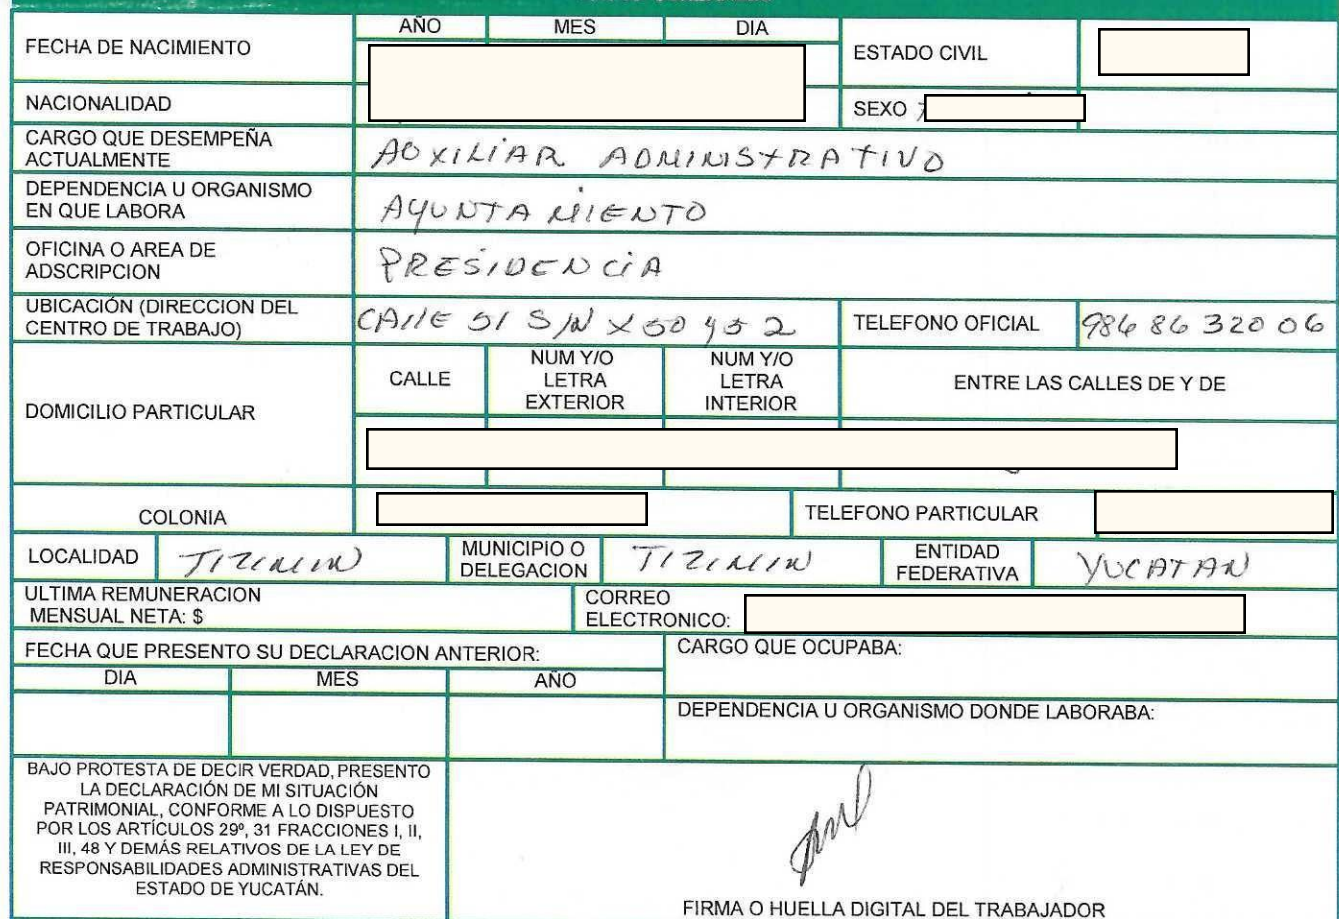 AÑO MES DIA
FECHA DE NACIMIENTO
ESTADO CIVIL
NACIONALIDAD
SEXO
CARGO QUE DESEMPEÑA
ACTUALMENTE
AUXILIAR ADMINISTRATIVO
DEPENDENCIA U ORGANISMO
EN QUE LABORA
AYUNTAMIENTO
OFICINA O AREA DE
ADSCRIPCION
PRESIDENCIA
UBICACIÓN (DIRECCION DEL
CENTRO DE TRABAJO)
CALLE 51 S/N X 50 y 52
TELEFONO OFICIAL
986 86 320 06
DOMICILIO PARTICULAR
CALLE
NUM Y/O
LETRA
EXTERIOR
NUM Y/O
LETRA
INTERIOR
ENTRE LAS CALLES DE Y DE
COLONIA
TELEFONO PARTICULAR
LOCALIDAD
TIZIMIN
MUNICIPIO O
DELEGACION
TIZIMIN
ENTIDAD
FEDERATIVA
YUCATAN
ULTIMA REMUNERACION
MENSUAL NETA: $
CORREO
ELECTRONICO:
FECHA QUE PRESENTO SU DECLARACION ANTERIOR:
DIA MES AÑO
CARGO QUE OCUPABA:
DEPENDENCIA U ORGANISMO DONDE LABORABA:
BAJO PROTESTA DE DECIR VERDAD, PRESENTO
LA DECLARACIÓN DE MI SITUACIÓN
PATRIMONIAL, CONFORME A LO DISPUESTO
POR LOS ARTÍCULOS 29º, 31 FRACCIONES I, II,
III, 48 Y DEMÁS RELATIVOS DE LA LEY DE
RESPONSABILIDADES ADMINISTRATIVAS DEL
ESTADO DE YUCATÁN.
FIRMA O HUELLA DIGITAL DEL TRABAJADOR